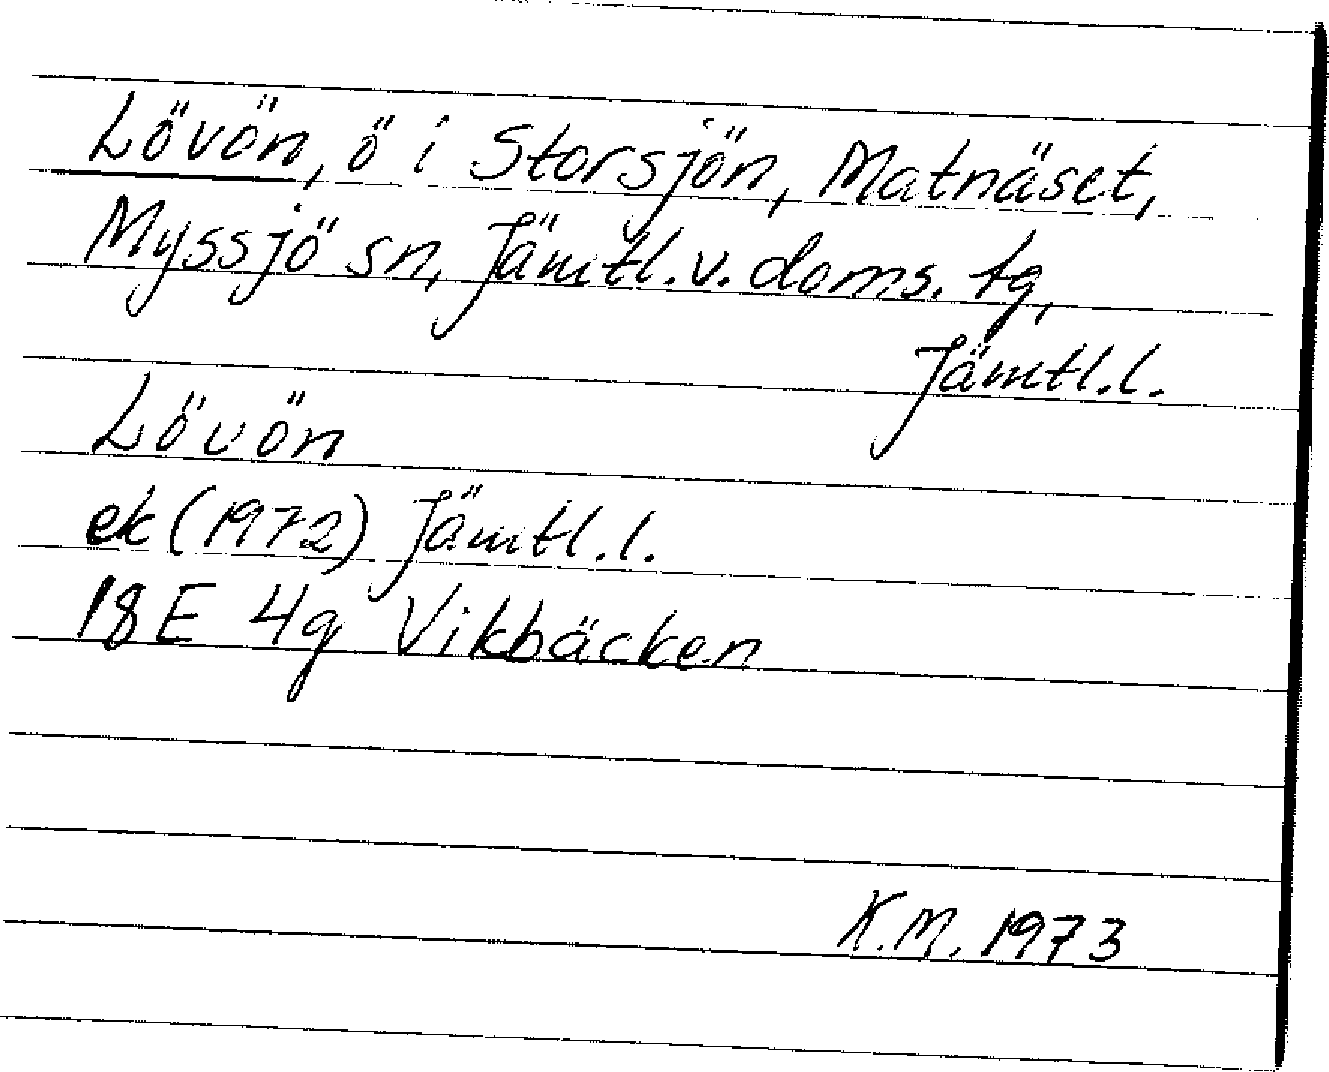 Lövön, ö i Storsjön, Matnäset,
Myssjö sn, Jämtl. v. doms. tg,
Jämtl. l.
Lövön
ek (1972) Jämtl. l.
18E 4g Vikbäcken
K.M. 1973